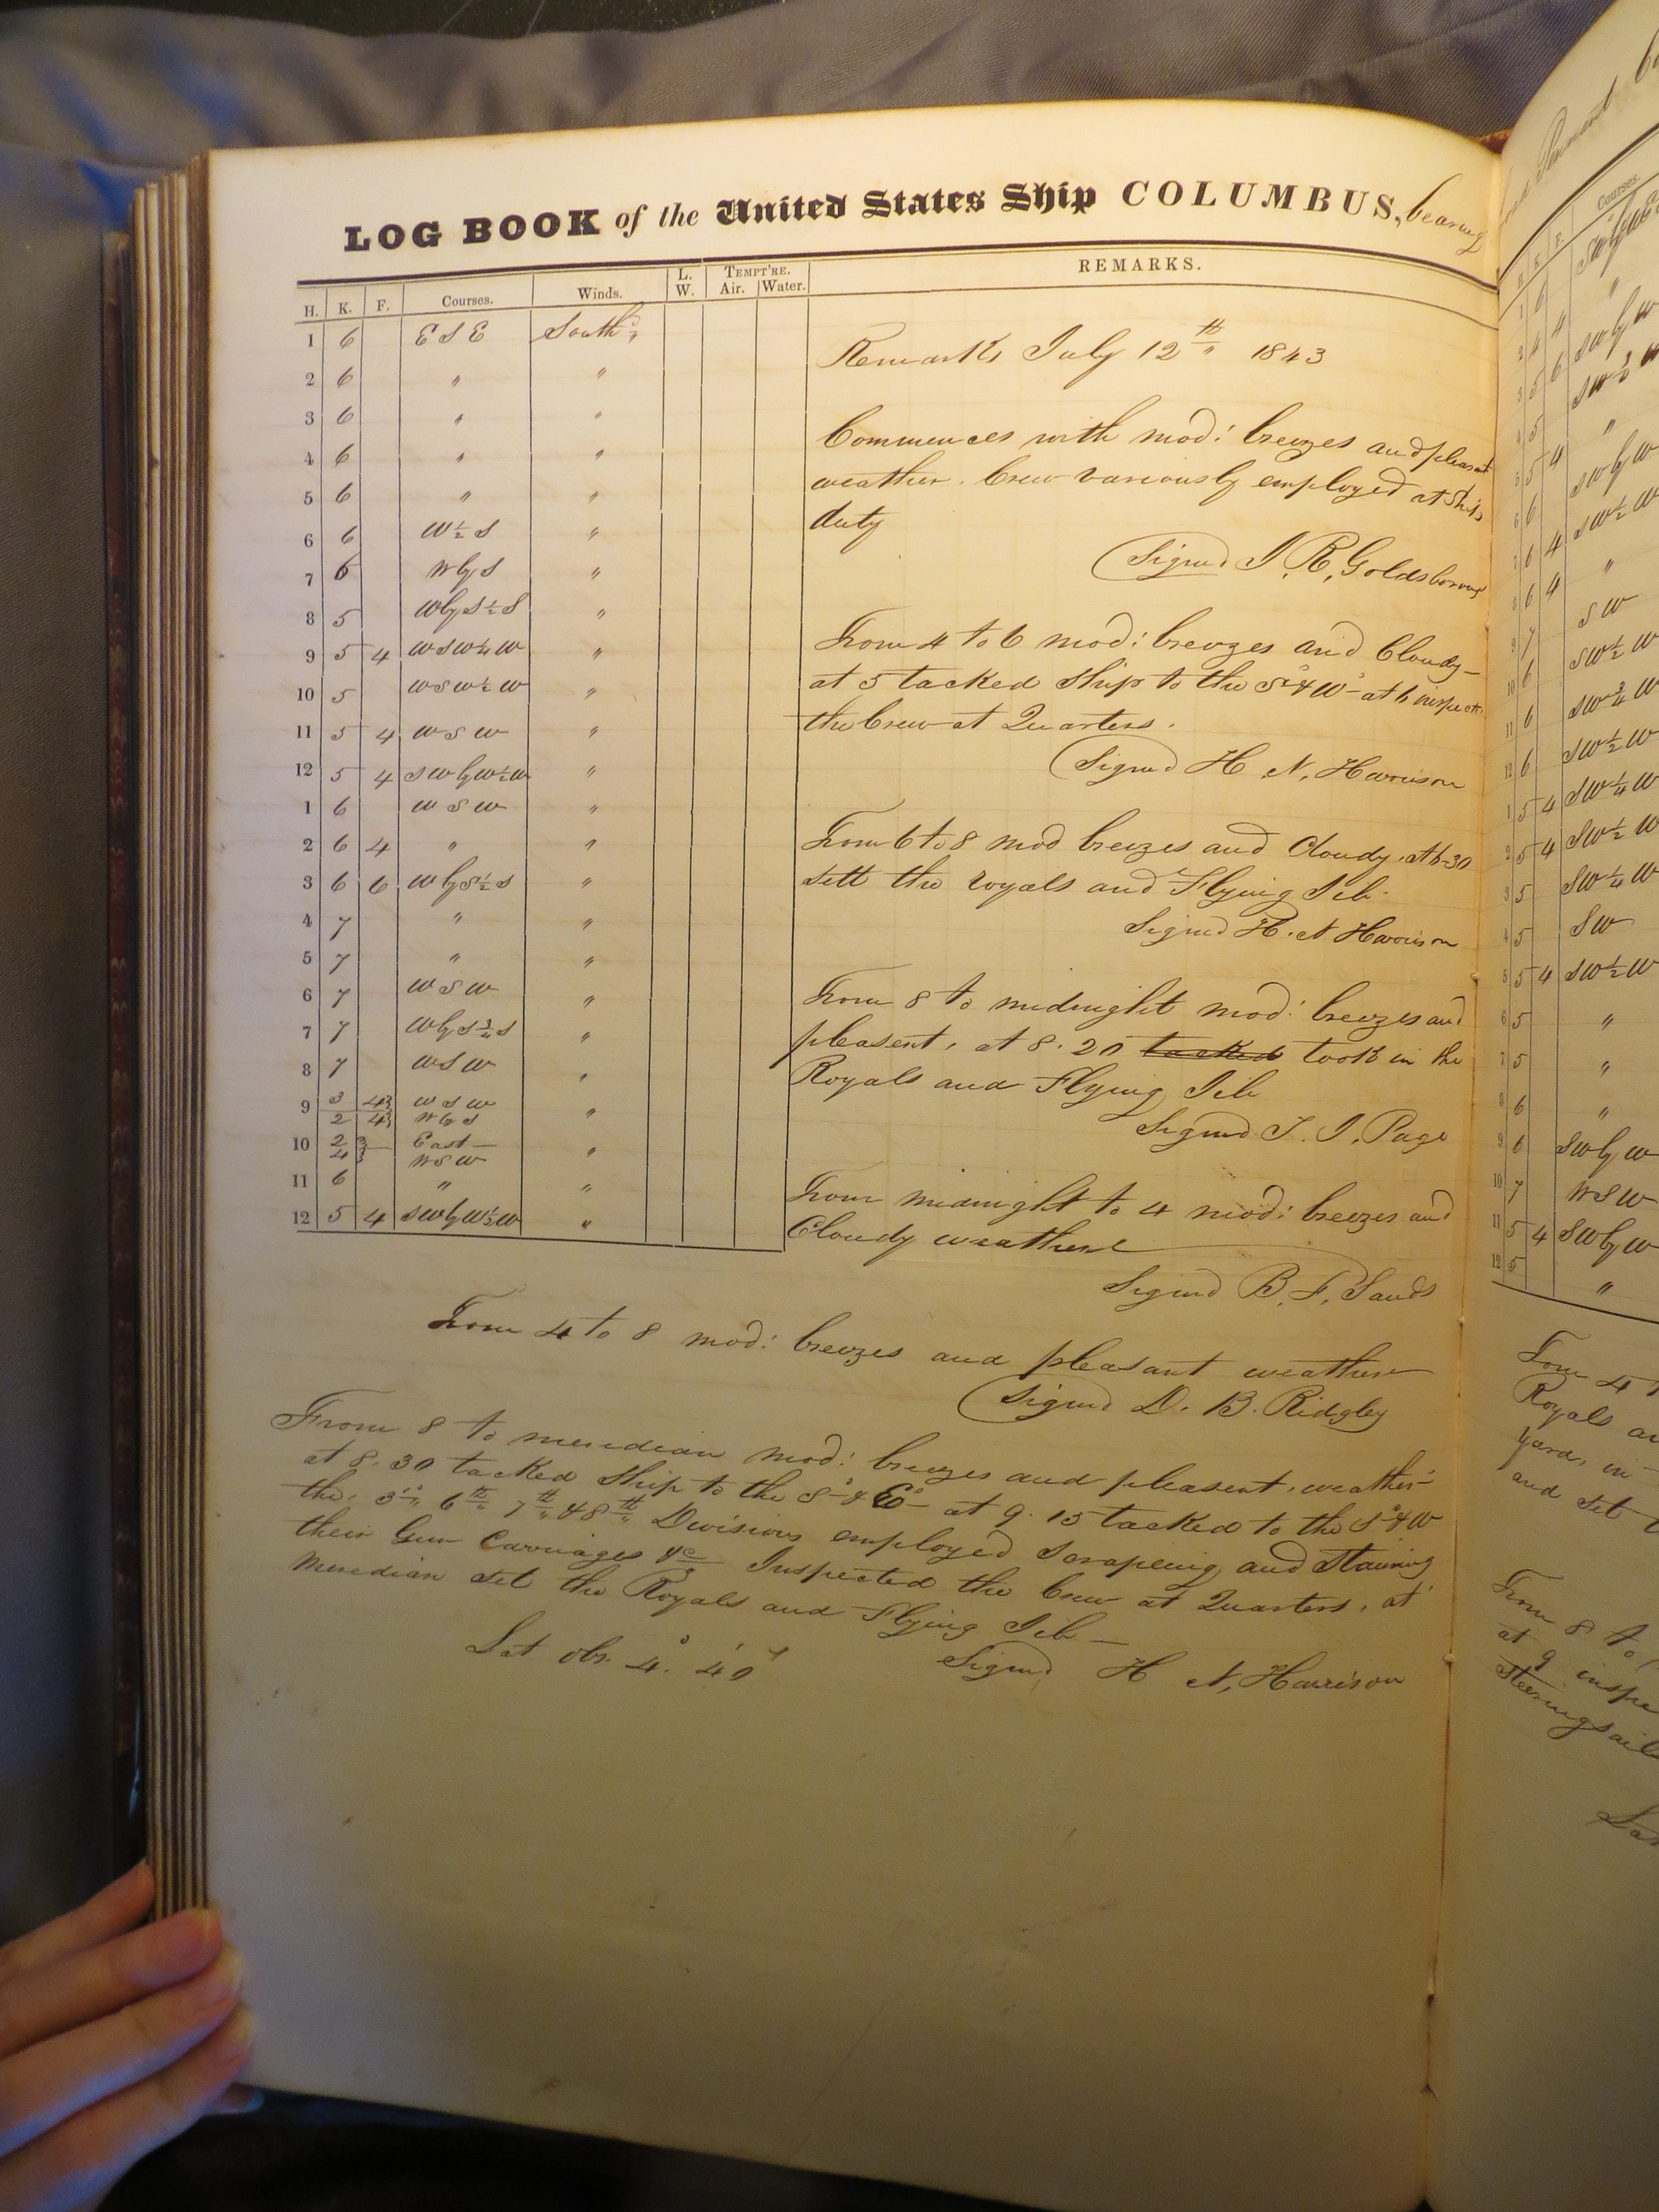 LOG BOOK of the United States Ship COLUMBUS, bearing
H. K. F. Courses. Winds. L. W. TEMPT'RE. Air. Water. REMARKS.
1 6 E S E South'd
2 6 " "
3 6 " "
4 6 " "
5 6 " "
6 6 W ½ S "
7 6 W by S "
8 5 W by S ½ S "
9 5 4 W S W ¼ W "
10 5 W S W ½ W "
11 5 4 W S W "
12 5 4 S W by W ½ W "
1 6 W S W "
2 6 4 " "
3 6 6 W by S ½ S "
4 7 " "
5 7 " "
6 7 W S W "
7 7 W by S ¾ S "
8 7 W S W "
9 3 4 W S W "
2 4 W by S
10 2 East "
4 W S W
11 6 " "
12 5 4 S W by W ½ W "
Remarks July 12th 1843
Commences with mod: breezes and pleasant
weather. Crew variously employed at Ship's
duty
Signed J. R. Goldsborough
From 4 to 6 mod: breezes and Cloudy
at 5 tacked Ship to the Sd & Wd at 6 inspected
the Crew at Quarters.
Signed H. N. Harrison
From 6 to 8 mod breezes and Cloudy. At 6-30
sett the royals and Flying Jib.
Signed H. N Harrison
From 8 to midnight mod: breezes and
pleasent, at 8.20 tacked took in the
Royals and Flying Jib
Signed T. J. Page
From midnight to 4 mod: breezes and
Cloudy weather
Signed B. F. Sands
From 4 to 8 mod: breezes and pleasant weather
Signed D. B. Ridgley
From 8 to meredian mod: breezes and pleasent, weather
at 8.30 tacked Ship to the Sd & Ed at 9.15 tacked to the Sd & W
the, 3d 6th 7th & 8th Divisions employed Scrapeing and Staining
their Gun Carriages &c Inspected the Crew at Quarters, at
Meredian set the Royals and Flying Jib
Lat obs. 4° 40'
Signed H N, Harrison
Courses.
H. K. F.
S W by W
S W
S W ½ W
S W ¾ W
S W ½ W
S W ¼ W
S W ½ W
S W ¼ W
S W
S W ½ W
"
"
"
S W by W
W S W
S W by W
"
From 4
Royals an
Yard, in
and set
From 8 to
at 9 inspe
Steeringsail